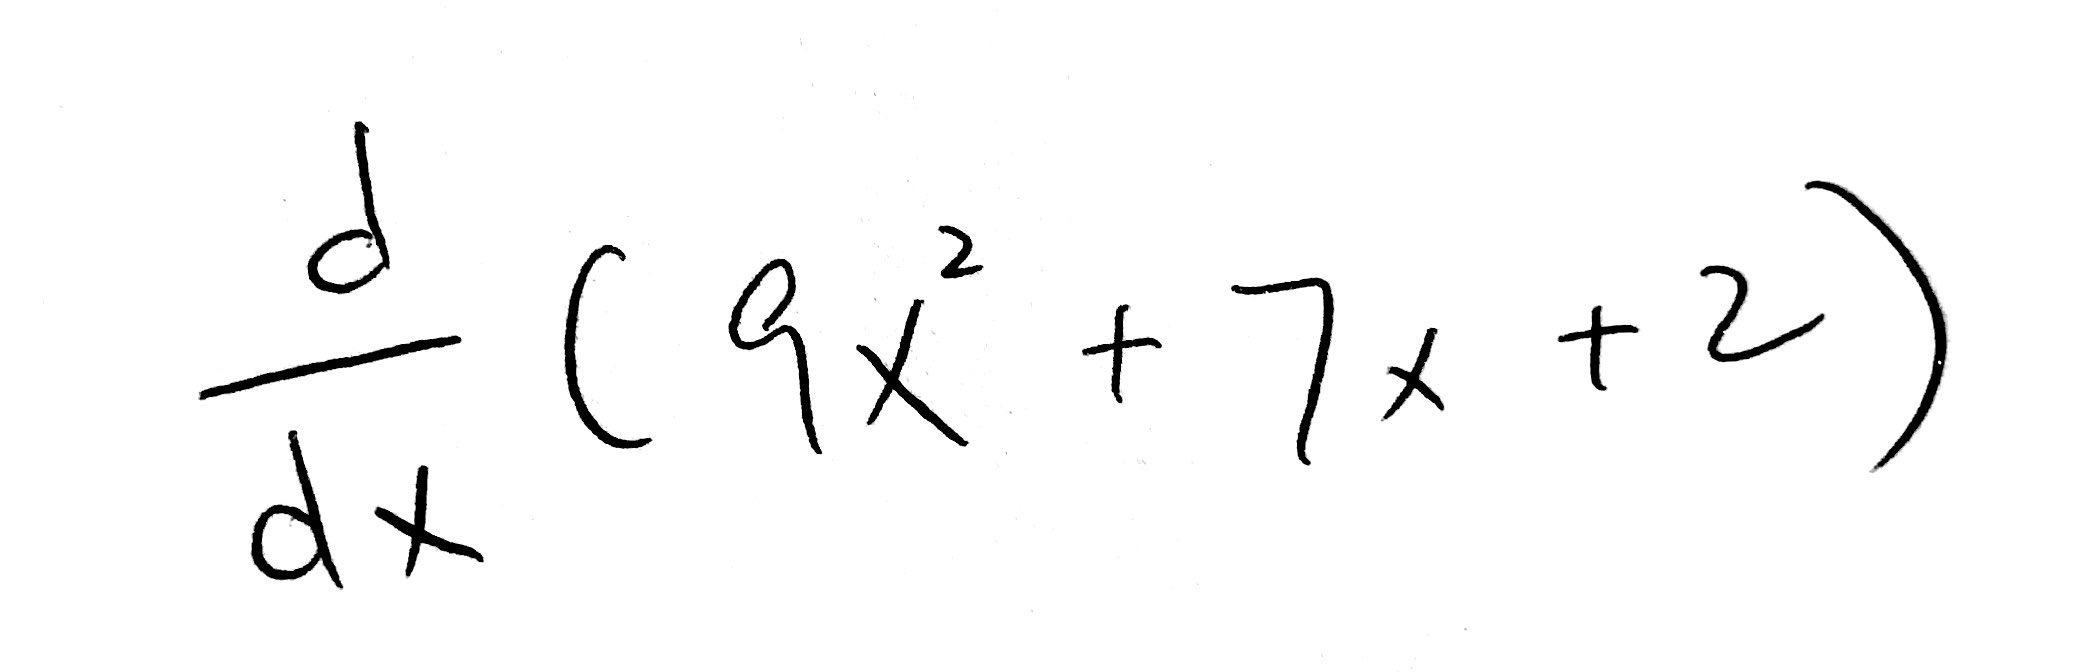 d/dx (9x² + 7x + 2)